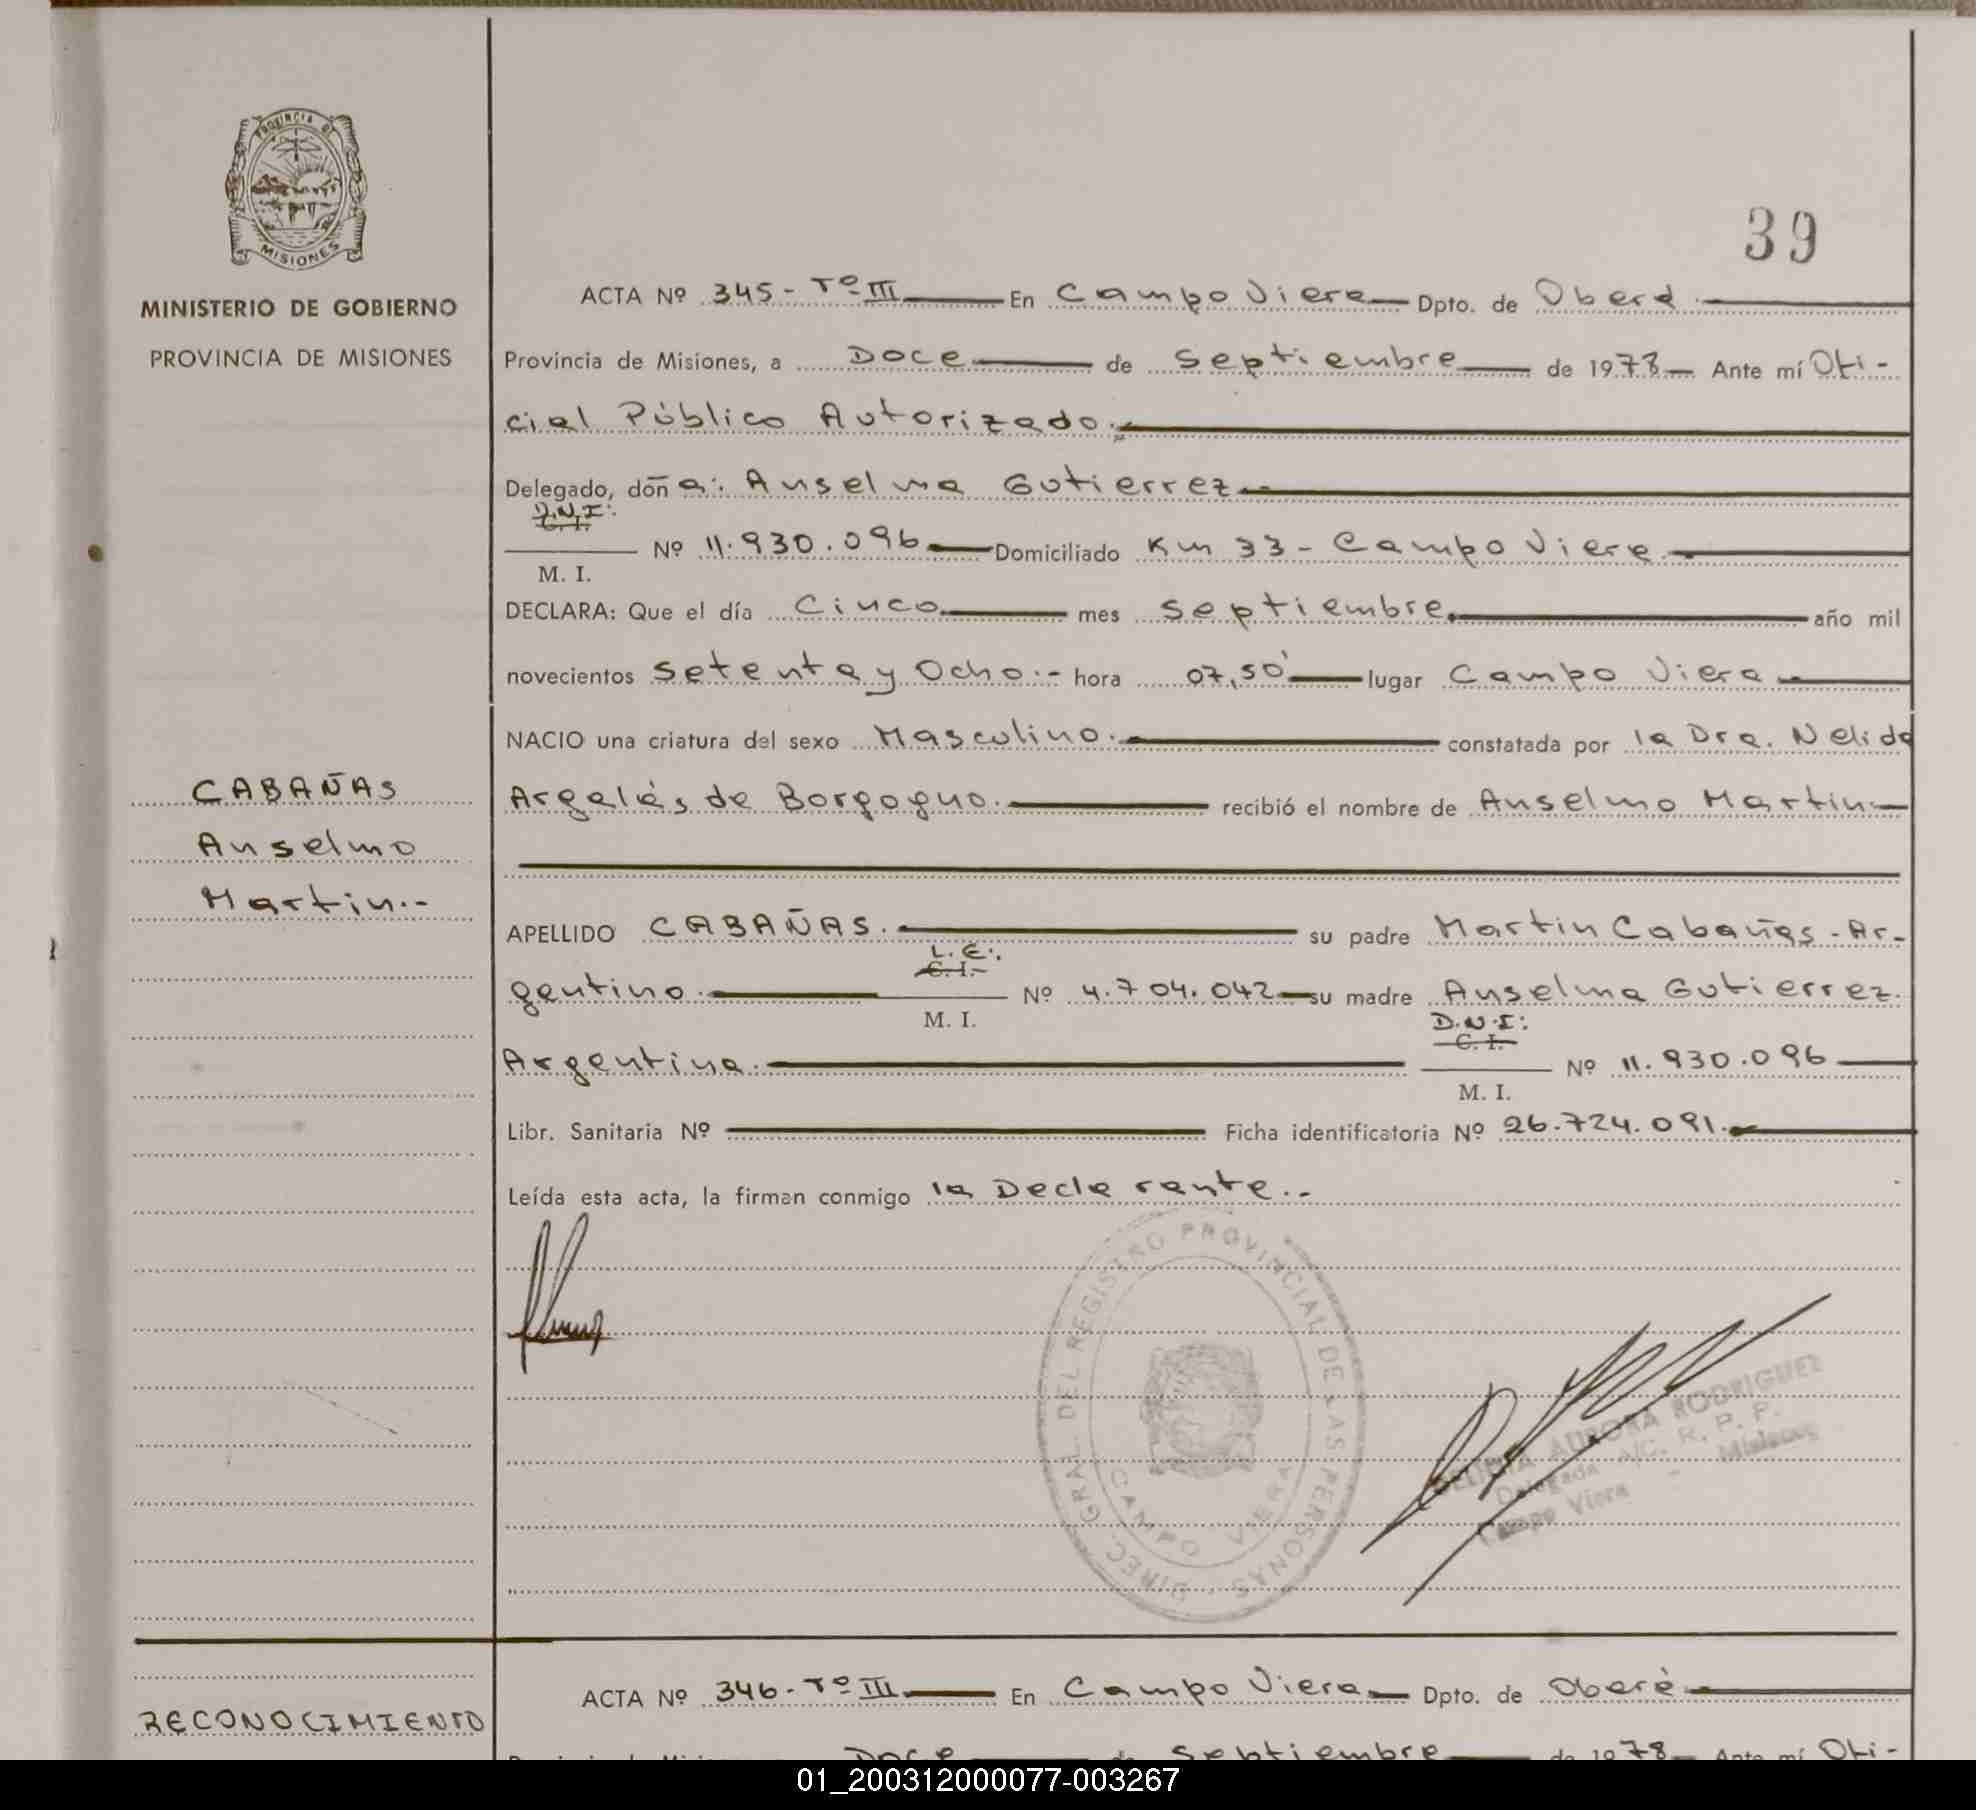 PROVINCIA DE
MISIONES
MINISTERIO DE GOBIERNO
PROVINCIA DE MISIONES
39
ACTA Nº 345 - Tº III En Campo Viera Dpto. de Oberá
Provincia de Misiones, a Doce de Septiembre de 1978 Ante mí Ofi-
cial Público Autorizado.-
Delegado, doña: Anselma Gutierrez
D.N.I:
C. I.
Nº 11.930.096 Domiciliado Km 33 - Campo Viera
M. I.
DECLARA: Que el día Cinco mes Septiembre. año mil
novecientos Setenta y Ocho.- hora 07,50' lugar Campo Viera
NACIO una criatura del sexo Masculino. constatada por la Dra. Nelida
CABAÑAS
Argelés de Borgogno. recibió el nombre de Anselmo Martin
Anselmo
Martin.-
APELLIDO CABAÑAS. su padre Martin Cabañas - Ar-
L.E:.
C. I.
gentino. Nº 4.704.042 su madre Anselma Gutierrez.
M. I.
D.N.I:
C. I.
Argentina. Nº 11.930.096
M. I.
Libr. Sanitaria Nº Ficha identificatoria Nº 26.724.091.
Leída esta acta, la firman conmigo la Declarante.-
DIREC. GRAL. DEL REGISTRO PROVINCIAL DE LAS PERSONAS
CAMPO VIERA
AURORA RODRIGUEZ
Delegada A/C. R. P. P.
Campo Viera - Misiones
ACTA Nº 346 - Tº III En Campo Viera Dpto. de Oberá
RECONOCIMIENTO
Doce de Septiembre de 1978 Ante mí Ofi-
01_200312000077-003267